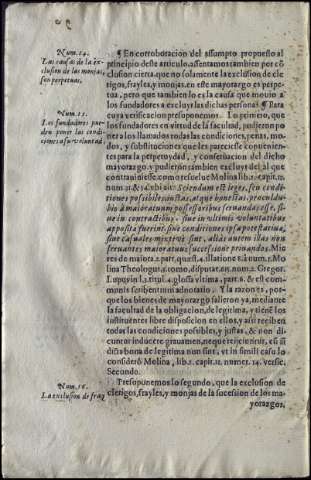 Num. 14.
Las causas de la ex-
clusion de las monjas,
son perpetuas.
¶ En corroboracion del assumpto propuesto al
principio deste articulo, assentamos tambien por cõ
clusion cierta, que no solamente la exclusion de cle-
tigos, frayles, y monjas, en este mayorazgo es perpe-
tua, pero que tambien lo es la causa que mouio à
los fundadores a excluyr las dichas personas. ¶ Para
Num. 15.
Los fundadores pue-
den poner las condi-
ciones a su voluntad.
cuya verificacion presuponemos. Lo primero, que
los fundadores en virtud de la facultad, pudieron po
ner a los llamados todas las condiciones, penas, mo-
dos, y substituciones que les pareciesse conuenien-
tes para la perpetuydad, y conseruacion del dicho
mayorazgo, y pudieron tambien excluyr del, al que
contrauiniesse, como resuelue Molina lib. 1. capit. 12.
num. 2. & 14. vbi ait: Sciendum est leges, seu conditi
ones possibiles iustas, atque honestas, præcluden-
dis à maioratuum possessoribus seruandas esse, si-
ue in contractibus, siue in vltimis voluntatibus
apposita fuerint, siue conditiones ipsæ potestatiuæ,
siue casuales, mixtæ vè sint, alias autem illas non
seruantes maioratus successione priuandos. Mie
res de maiorat. part. quæst. 4. illatione 1. à num. 5. Mo
lina Theologus, 2. tomo, disputat. nu. 2. Gregor.
Lupus in l. 2. titul. 4. glossa vltima, part. 6. & est com
munis scribentium adnotatio. Y la razon es, por-
que los bienes de mayorazgo salieron ya, mediante
la facultad de la obligacion, de legitima, y tiene los
instituentes libre disposicion en ellos, y assi reciben
todas las condiciones possibles, y justas, & non di-
cuntur inducere grauamen, neque reijciuntur, ex si
dicta bona de legitima non sint, vt in simili casu lo
considerò Molina, lib. 2. capit. 12. numer. 14. versic.
Secundo.
Num. 16.
La exclusion de fray
Presuponemos lo segundo, que la exclusion de
clerigos, frayles, y monjas de la sucession de los ma-
yorazgos,